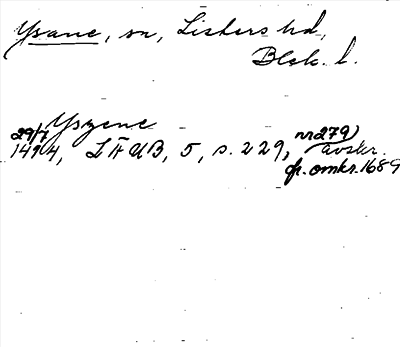 Ysane, sn, Listers hd,
Blek. l.
Yszene
29/7 1494, LÄUB, 5, s. 229, nr 279, avskr.
fr. omkr. 1689